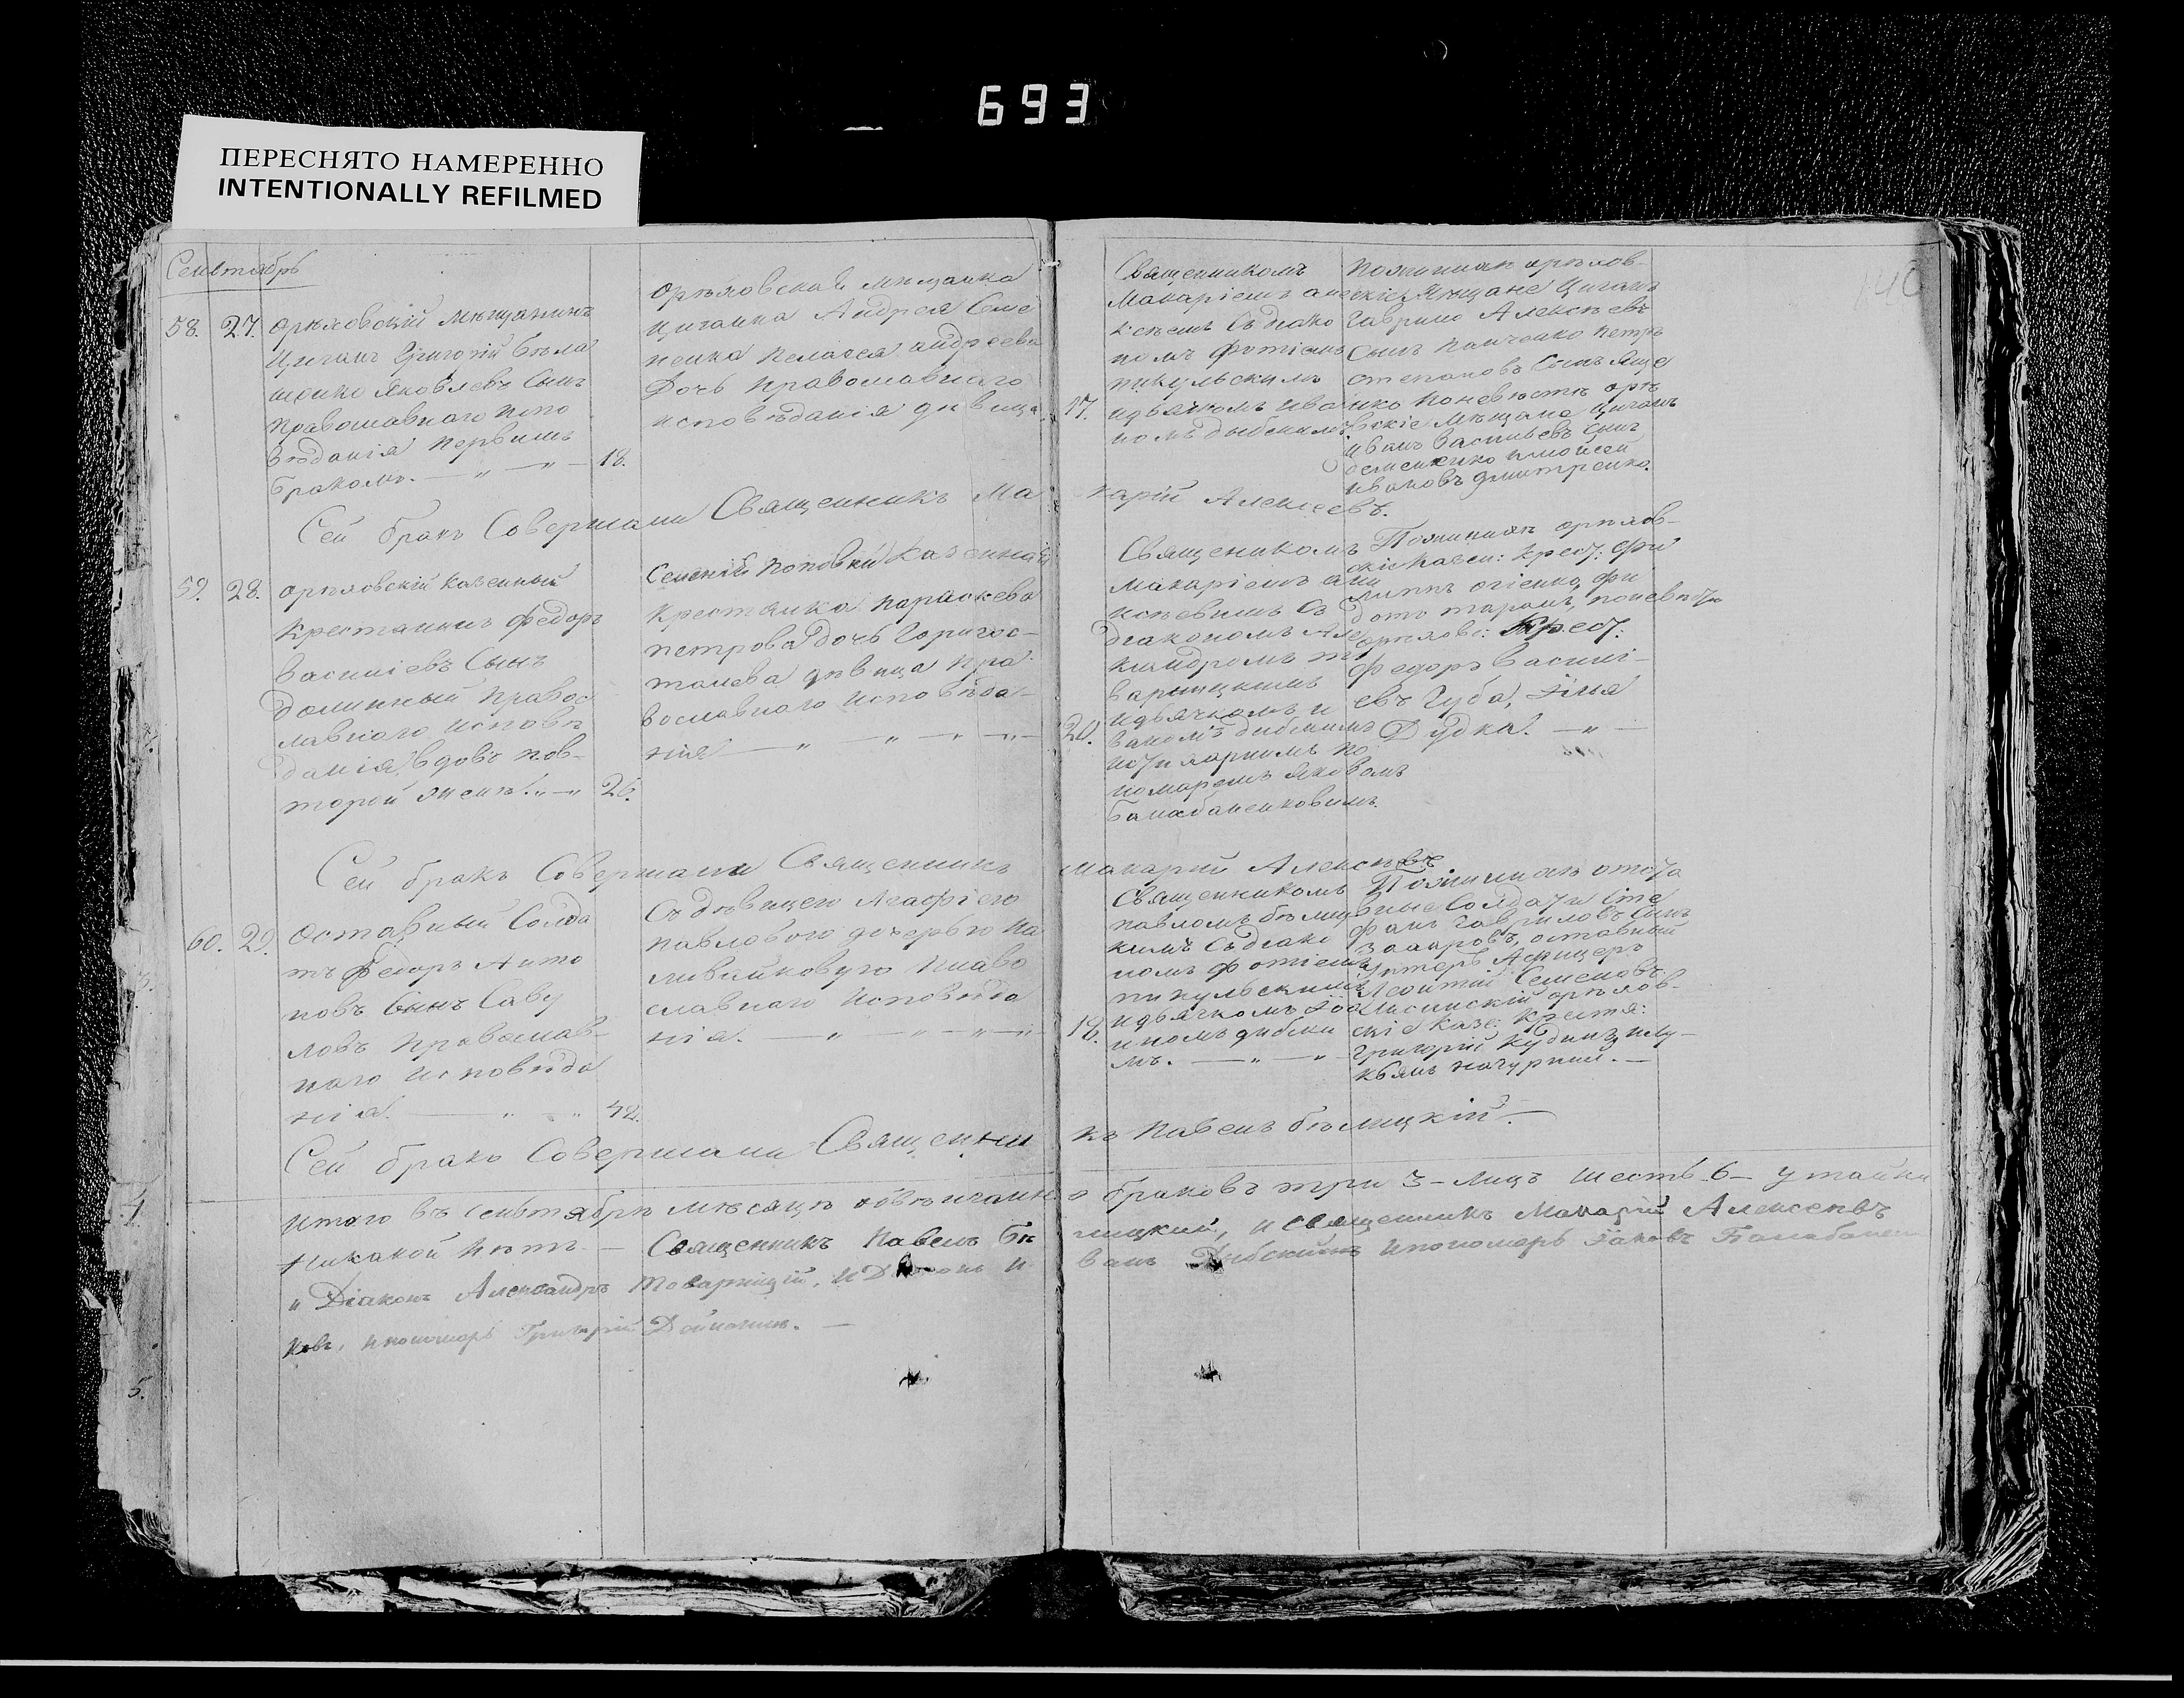 693
ПЕРЕСНЯТО НАМЕРЕННО
INTENTIONALLY REFILMED
Сентябрь
58. 27. Орѣховскій мѣщанинъ
Циганъ Григорій Бѣла
шенко Яковлевъ Сынъ
православнаго испо
вѣданія первымъ
бракомъ. 18.
Орѣховская мѣщанка
циганка Андрея Семе
ненка Пелагея Андреева
Дочь православнаго
исповѣданія дѣвица 17.
Священникомъ
Макаріемъ Але
ксѣемъ съ діако
номъ Фотіемъ
Пикульскимъ
и дьячкомъ Іва
номъ Дибскимъ
Поженихѣ орѣхов-
скіе мѣщане Циганъ
Гаврило Алексѣевъ
Сынъ Панченко Петръ
Степановъ Сынъ Яще
нко Поневѣстѣ орѣ
вскіе мѣщане Циганъ
Иванъ Васильевъ Сынъ
Семененко и Мойсей
Ивановъ Дмитренко.
Сей бракъ Совершали Священникъ Ма карій Алексѣевъ.
59. 28. Орѣховскій казенный
крестьянинъ Федоръ
Василіевъ Сынъ
Долинный правос
лавнаго исповѣ
данія, вдовъ пов-
торой женѣ. 26.
Семеній Поповки казенная
крестьянка Параскева
Петрова дочь Горигос-
талева дѣвица пра
вославнаго исповѣда-
нія 20.
Священикомъ
Макаріемъ Але
ксѣевимъ Съ
діакономъ Але
ксандромъ То
варницкимъ
и дьячкомъ И
ваномъ Дибскимъ
по
номаремъ Яковомъ
Балабаненковимъ.
Пожинихѣ орѣхов-
скіе казен: крест: Фи
липъ Огіенко, Фе
дотъ Таранъ, поневѣсте
орѣховс: крест:
Федоръ Василі-
евъ Губа, Илья
Дудка.
Сей бракъ Совершали Священникъ Макарій Алексѣевъ
60. 29. Оставный Солда
тъ Федоръ Анто
новъ Сынъ Саву
ловъ Православ-
наго Исповѣда
нія. 42.
Съ дѣвицею Агафіею
Павловою дочерью На
ливайковую Право
славнаго Исповѣда
нія. 18.
Священикомъ
Павломъ Бѣлиц
кимъ Съ діако
номъ Фотіемъ
Пикульскимъ
и дьячкомъ Іоа
номъ Дибски
мъ.
Пожинихѣ отста
вные Солдаты Сте
фанъ Гавриловъ Сынъ
Захаровъ, оставный
Унтеръ Афицеръ
Леонтій Семеновъ
Лисинскій орѣхов-
скіе казе: крестя:
Григорій Кудинъ, и Лу-
кьянъ Качурний.
Сей бракъ Совершали Священни къ Павелъ Бѣлицкій.
Итого въ Сентябрѣ мѣсяцѣ обвѣнчанно браковъ три 3 – лицъ шесть 6 – утайки
Никакой нѣтъ. – Священникъ Павелъ Бѣ лицкий, и Священникъ Макарій Алексѣевъ
Діаконъ Александръ Товарницій, и Дьячокъ И ванъ Дибскій и пономарь Іаковъ Балабанен
ковъ, и пономарь Григорій